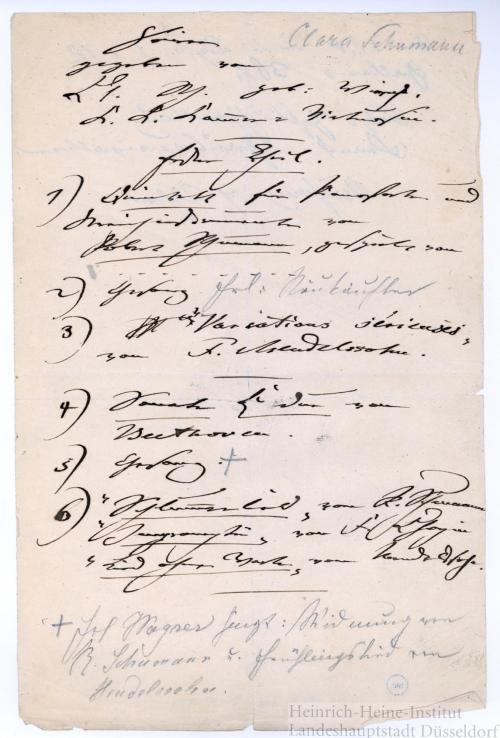 Clara Schumann
Soirée
gegeben von
Cl. Sch. geb: Wieck
K. K. Kammer-Virtuosin.
Erster Theil.
1) Quintett für Pianoforte und
Streichinstrumente von
Robert Schumann, gespielt von
2) Gesang Frl:
3) "Variations sérieuses"
von F. Mendelssohn.
4) Sonate dur von
Beethoven.
5) Gesang. +
6) "Schlummerlied" von R. Schumann
"Impromptu" von F. Chopin
"Lied ohne Worte" von Mendelssohn.
+ Frl Wagner singt: Widmung von
R. Schumann u. Frühlingslied von
Mendelssohn.
Heinrich-Heine-Institut
Landeshauptstadt Düsseldorf